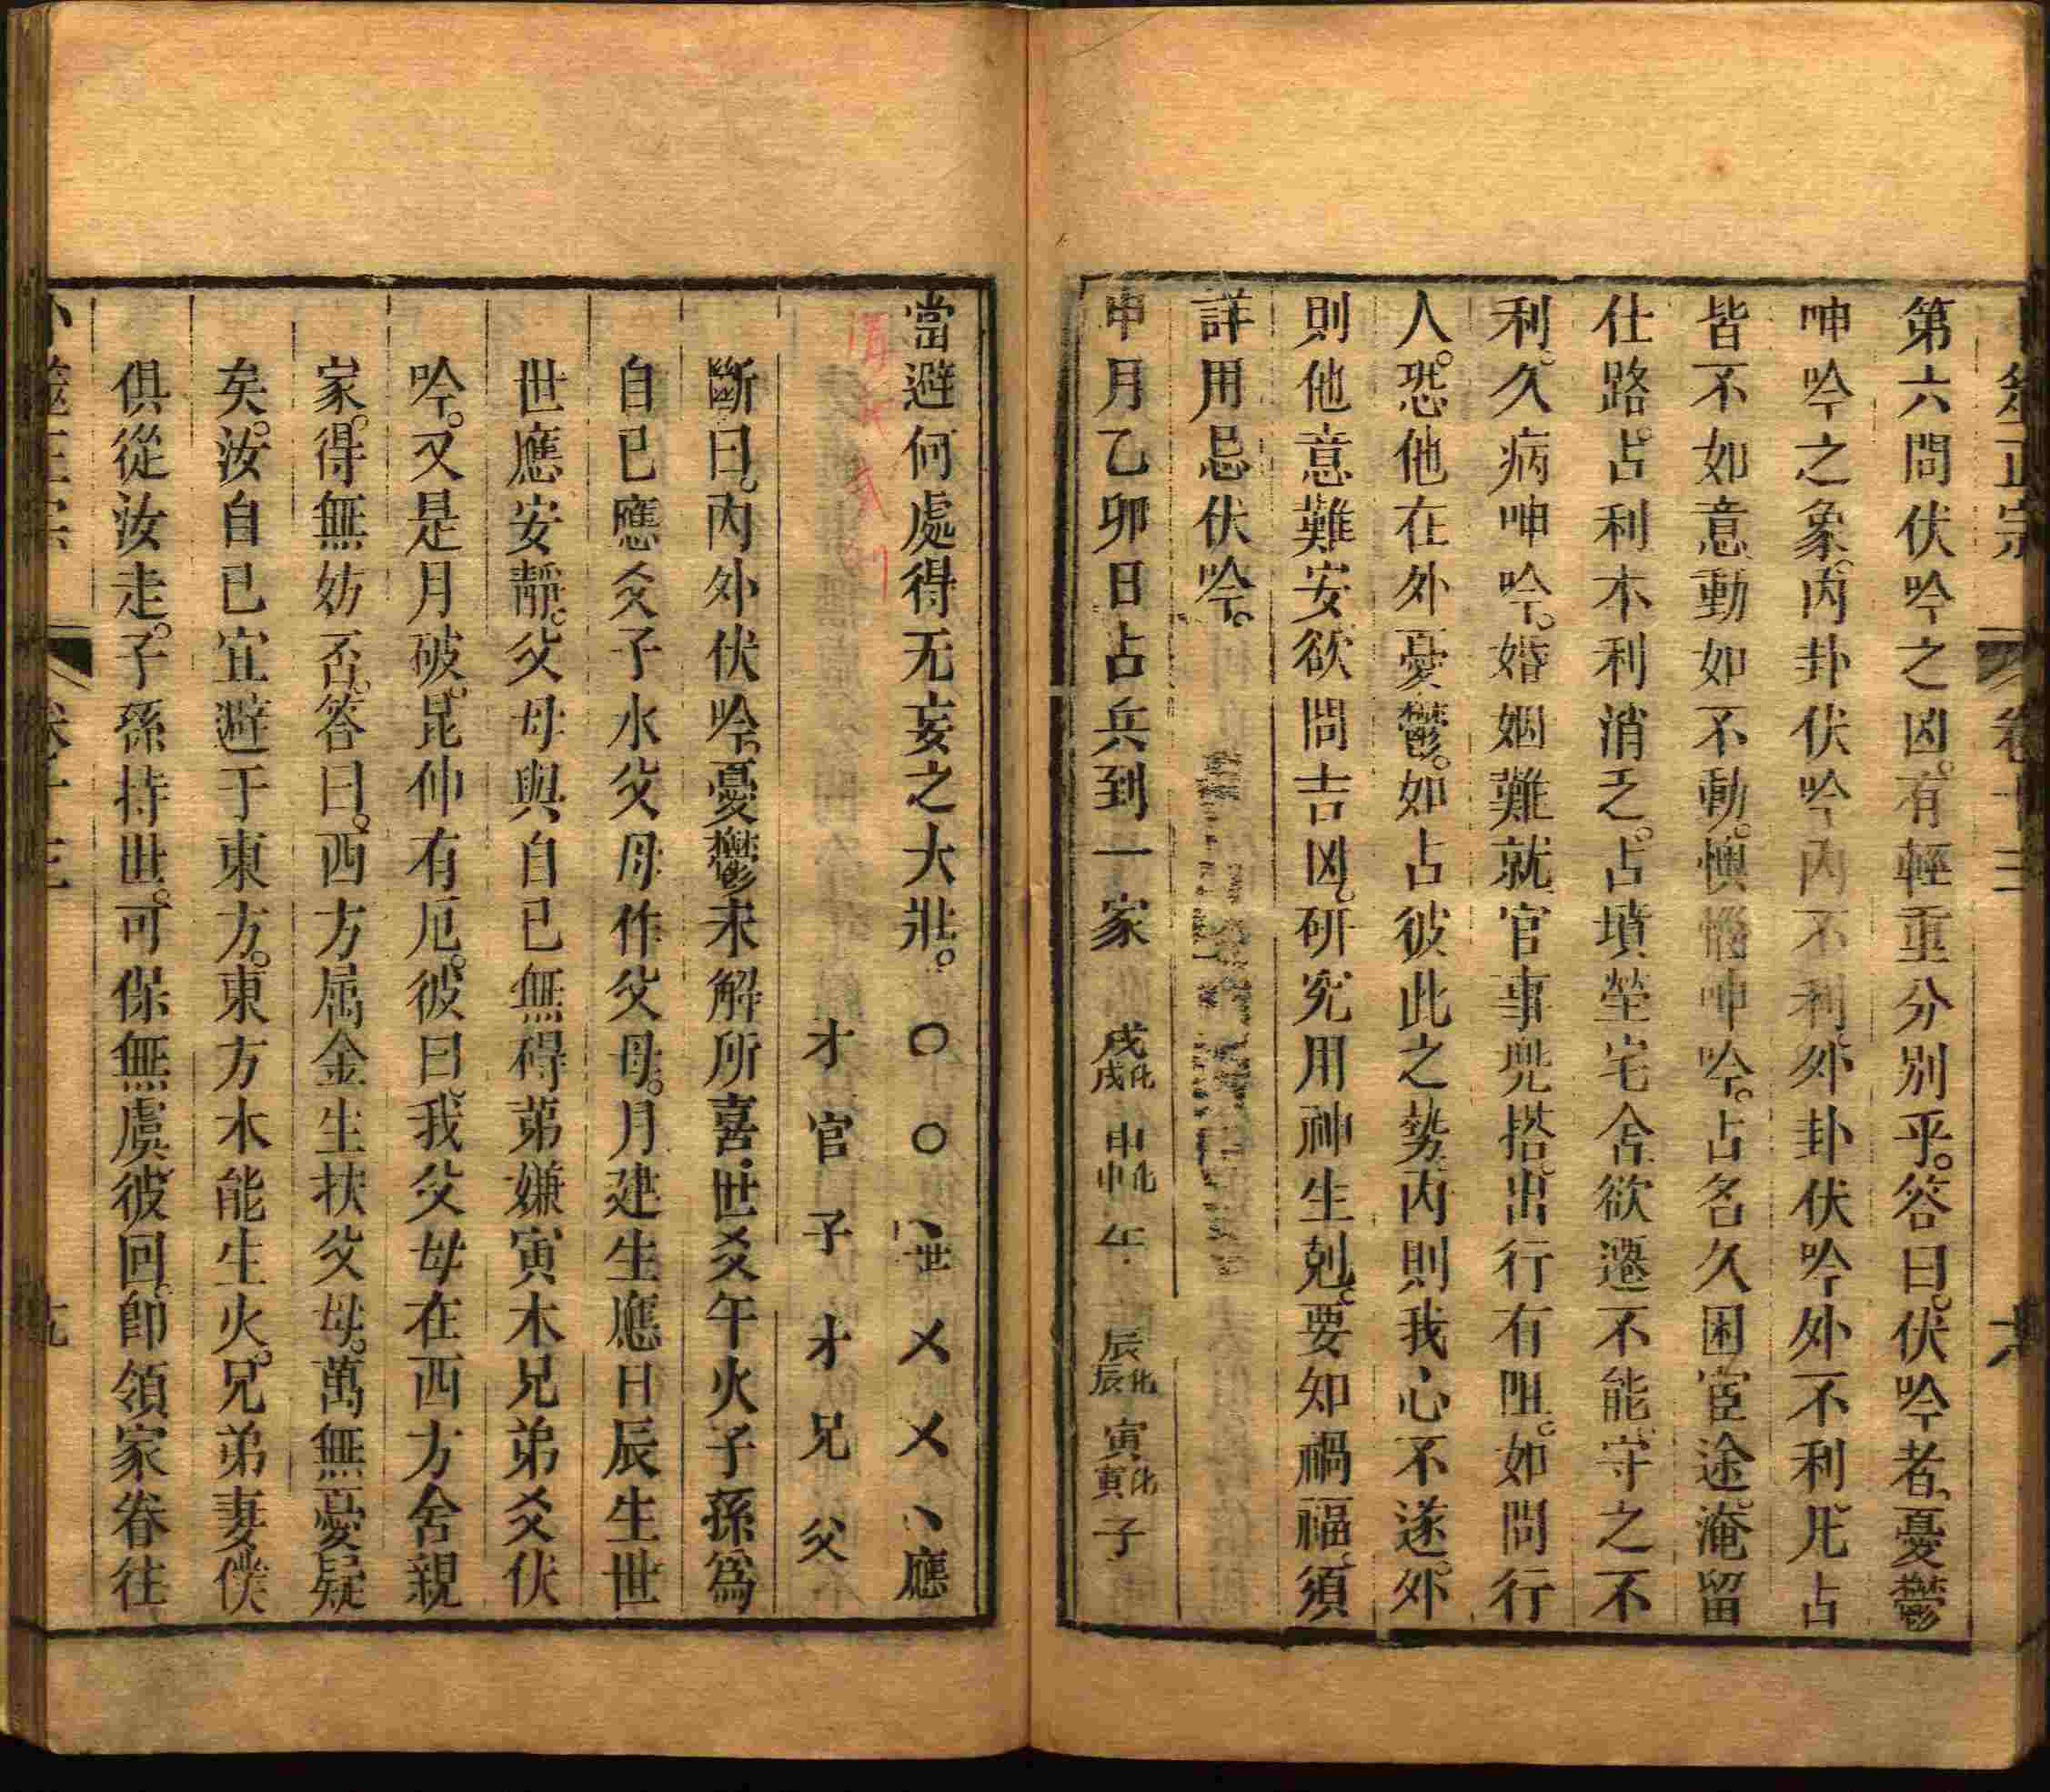 第六問伏吟之凶。有輕重分別乎。答曰。伏吟者、憂鬱
呻吟之象。內卦伏吟內不利、外卦伏吟外不利、凡占
皆不如意動如不動。懊惱呻吟。占名久困宦途、淹留
仕路。占利本利消乏。占墳塋宅舍欲遷不能、守之不
利。久病呻吟。婚姻難就官事兜搭、出行有阻。如問行
人。恐他在外憂鬱。如占彼此之勢、內則我心不遂。外
則他意難安欲問吉凶。研究用神生剋。要知禍福、須
詳用忌伏吟。
申月乙卯日占兵到一家 戌化戌 申化申 午 辰化辰 寅化寅 子
當避何處得无妄之大壯。〇 〇 丶世 乂 乂 丶應
才 官 子 才 兄 父
斷曰。內外伏吟、憂鬱未解所喜世爻午火子孫為
自己應爻子水父母作父母。月建生應日辰生世
世應安靜。父母與自己無碍第嫌寅木兄弟爻伏
吟。又是月破。昆仲有厄。彼曰。我父母在西方舍親
家。得無妨否。答曰。西方屬金生扶父母。萬無憂疑
矣。汝自己宜避于東方。東方木能生火。兄弟妻僕
俱從汝走。子孫持世。可保無虞彼回。即領家眷往